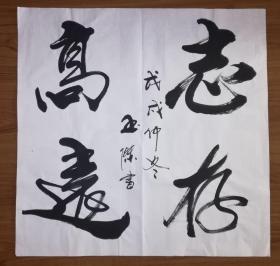 志存
高遠
戊戌仲冬
玉傑書